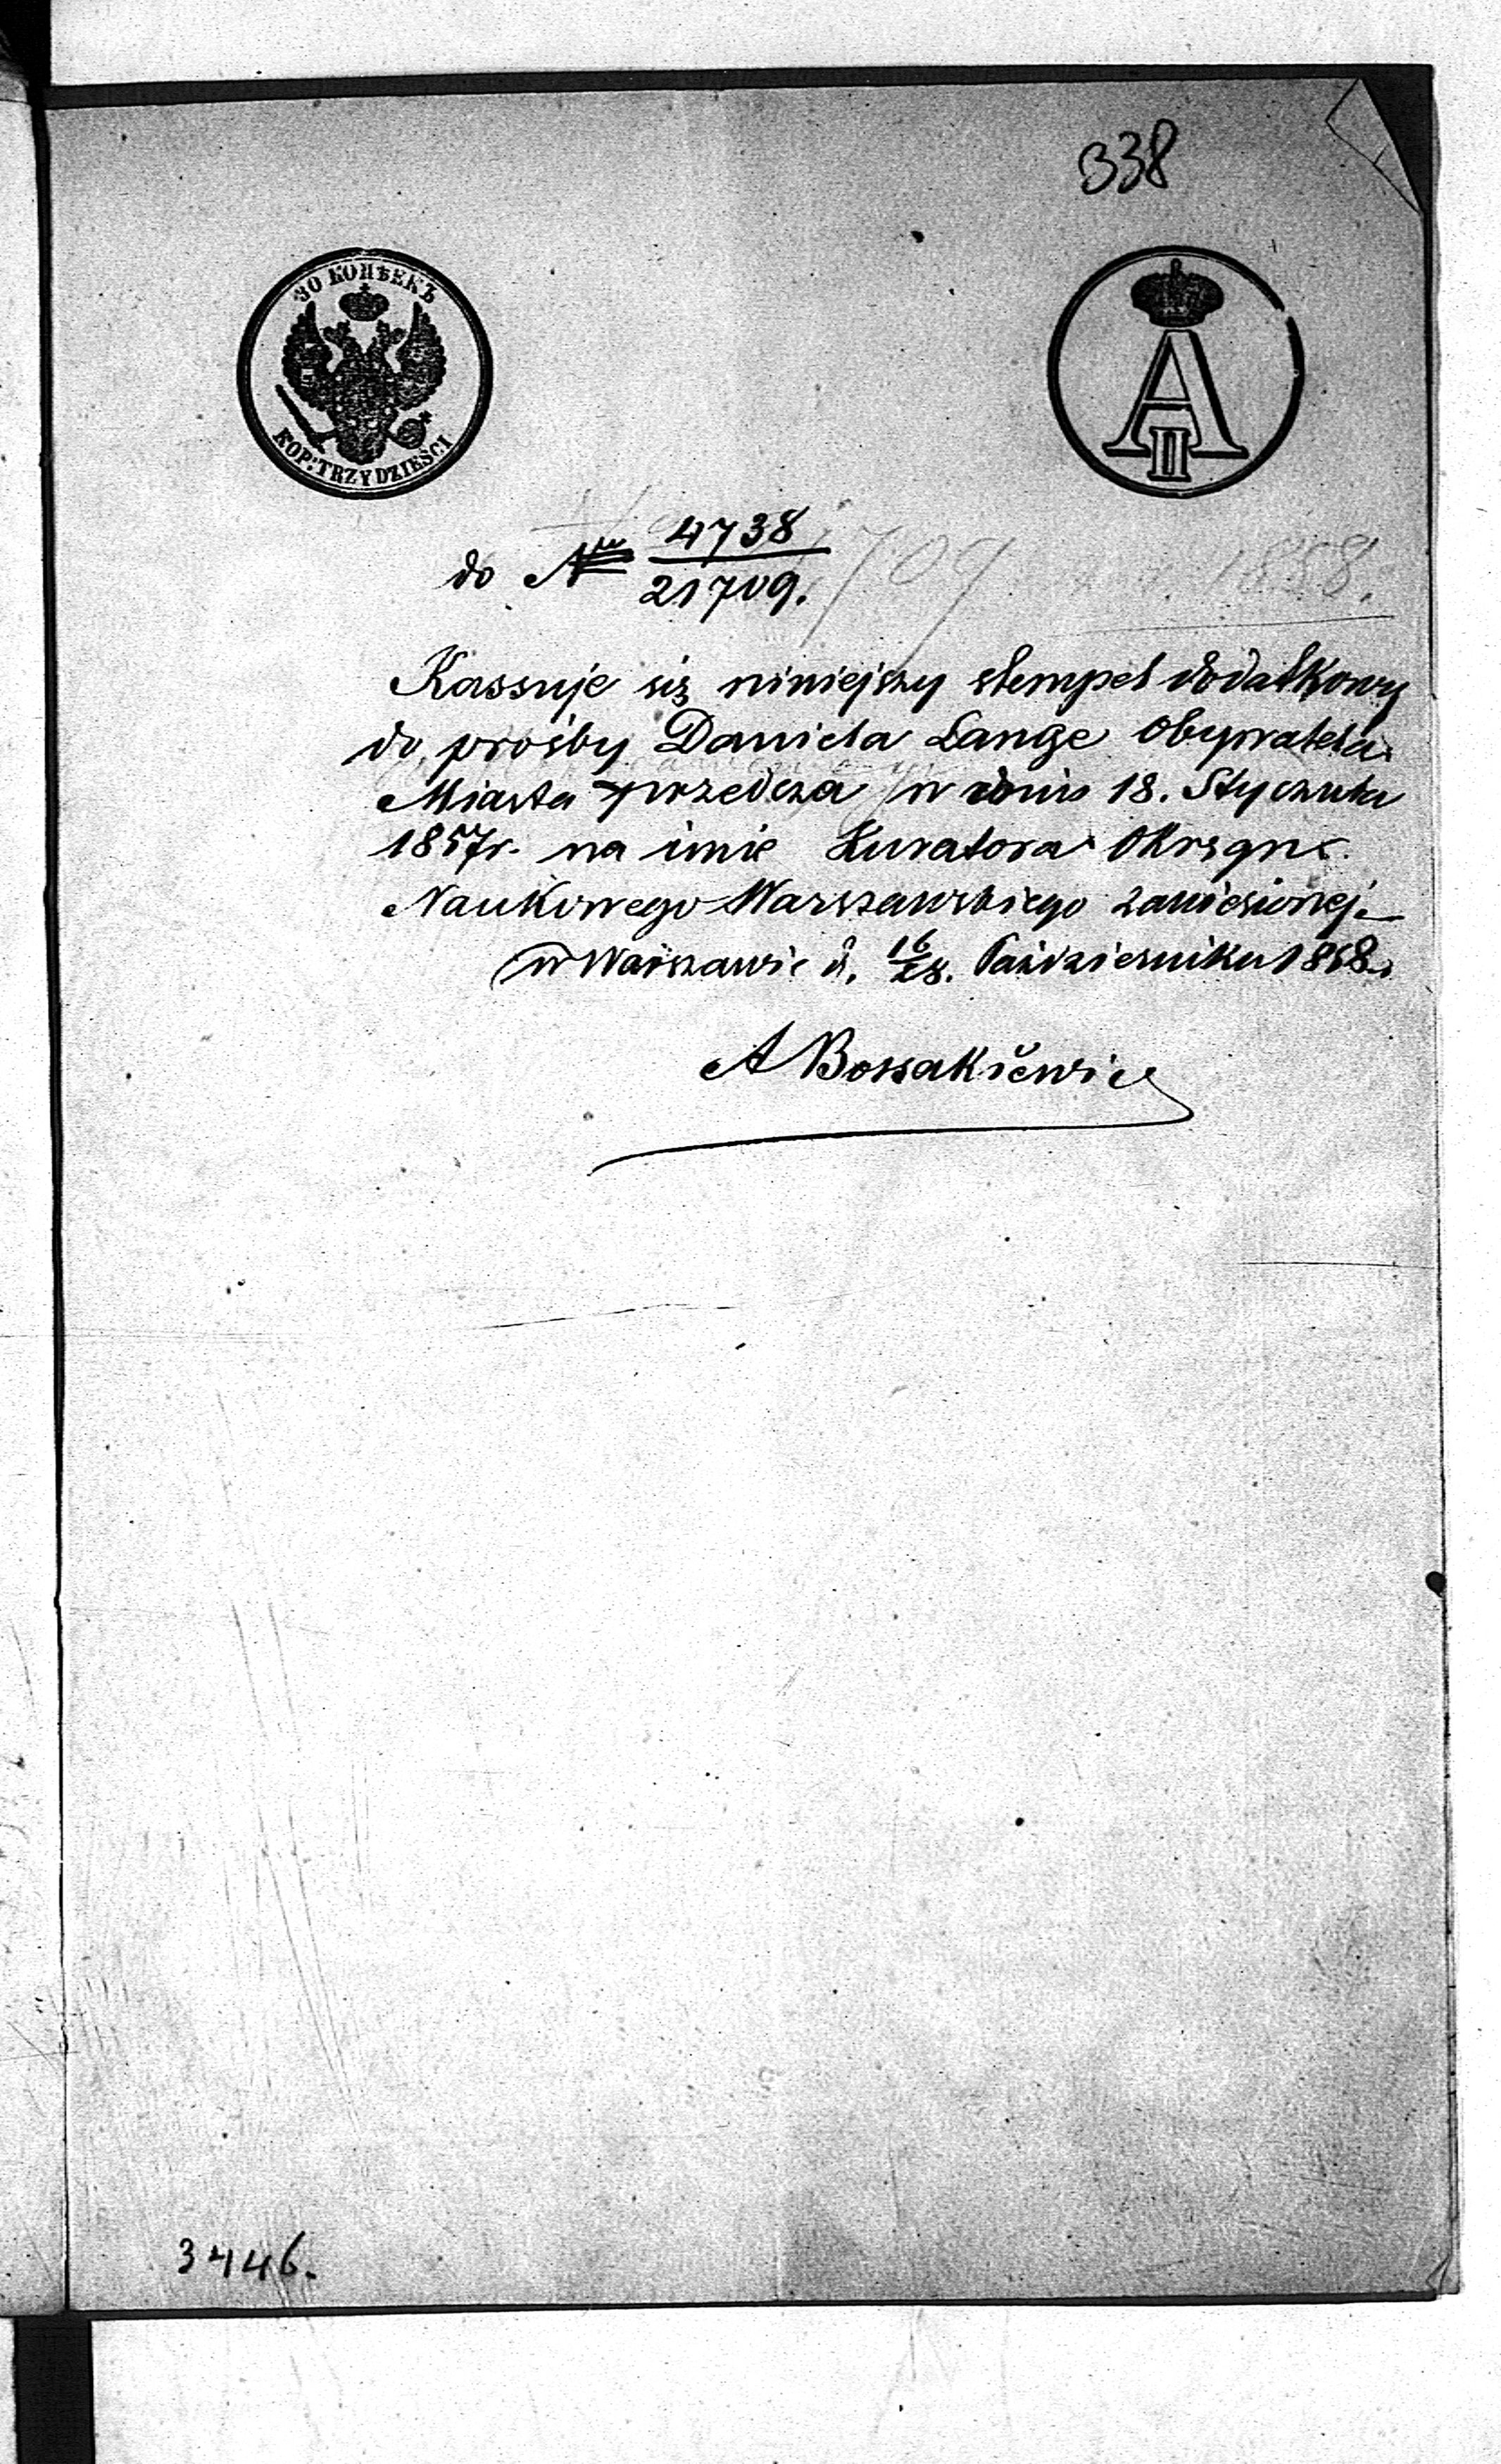 338
30 КОПѢЕКЪ
KOP: TRZYDZIEŚCI
A II
do Nru 4738
21709.
Kassuje się niniejszy stempel dodatkowy
do prośby Daniela Lange Obywatela
Miasta Przedcza w dniu 18. Stycznia
1857r. na imie Kuratora Okręgu
Naukowego Warszawskiego zaniesionej
w Warszawie d. 16/28. Października 1858r
A Bossakiewicz
3446.